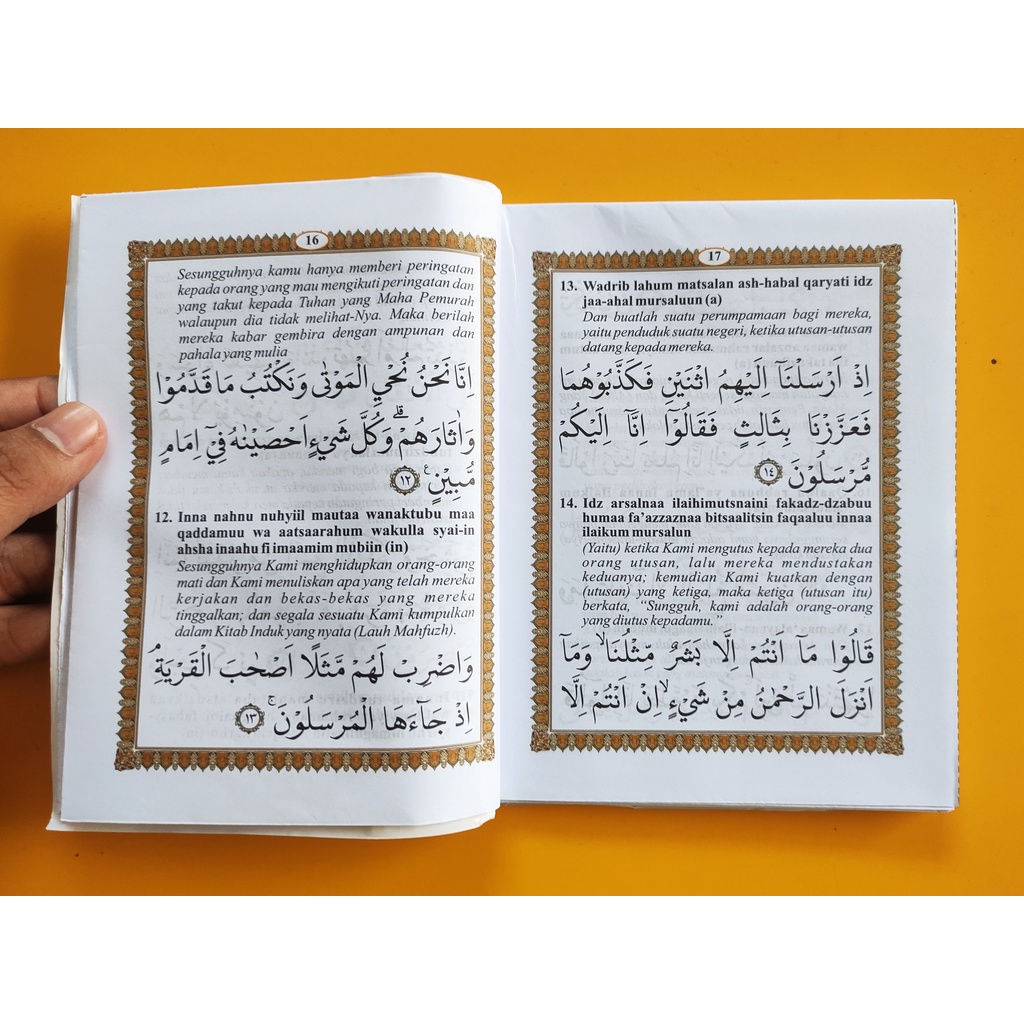 16
Sesungguhnya kamu hanya memberi peringatan
kepada orang yang mau mengikuti peringatan dan
yang takut kepada Tuhan yang Maha Pemurah
walaupun dia tidak melihat-Nya. Maka berilah
mereka kabar gembira dengan ampunan dan
pahala yang mulia
اِنَّا نَحْنُ نُحْيِ الْمَوْتٰى وَنَكْتُبُ مَا قَدَّمُوْا
وَاٰثَارَهُمْۗ وَكُلَّ شَيْءٍ اَحْصَيْنٰهُ فِيْٓ اِمَامٍ
مُّبِيْنٍ ࣖ ١٢
12. Inna nahnu nuhyiil mautaa wanaktubu maa
qaddamuu wa aatsaarahum wakulla syai-in
ahsha inaahu fi imaamim mubiin (in)
Sesungguhnya Kami menghidupkan orang-orang
mati dan Kami menuliskan apa yang telah mereka
kerjakan dan bekas-bekas yang mereka
tinggalkan; dan segala sesuatu Kami kumpulkan
dalam Kitab Induk yang nyata (Lauh Mahfuzh).
وَاضْرِبْ لَهُمْ مَّثَلًا اَصْحٰبَ الْقَرْيَةِۘ
اِذْ جَاۤءَهَا الْمُرْسَلُوْنَۚ ١٣
17
13. Wadrib lahum matsalan ash-habal qaryati idz
jaa-ahal mursaluun (a)
Dan buatlah suatu perumpamaan bagi mereka,
yaitu penduduk suatu negeri, ketika utusan-utusan
datang kepada mereka.
اِذْ اَرْسَلْنَآ اِلَيْهِمُ اثْنَيْنِ فَكَذَّبُوْهُمَا
فَعَزَّزْنَا بِثَالِثٍ فَقَالُوْٓا اِنَّآ اِلَيْكُمْ
مُّرْسَلُوْنَ ١٤
14. Idz arsalnaa ilaihimutsnaini fakadz-dzabuu
humaa fa’azzaznaa bitsaalitsin faqaaluu innaa
ilaikum mursalun
(Yaitu) ketika Kami mengutus kepada mereka dua
orang utusan, lalu mereka mendustakan
keduanya; kemudian Kami kuatkan dengan
(utusan) yang ketiga, maka ketiga (utusan itu)
berkata, “Sungguh, kami adalah orang-orang
yang diutus kepadamu.”
قَالُوْا مَآ اَنْتُمْ اِلَّا بَشَرٌ مِّثْلُنَاۙ وَمَآ
اَنْزَلَ الرَّحْمٰنُ مِنْ شَيْءٍۙ اِنْ اَنْتُمْ اِلَّا